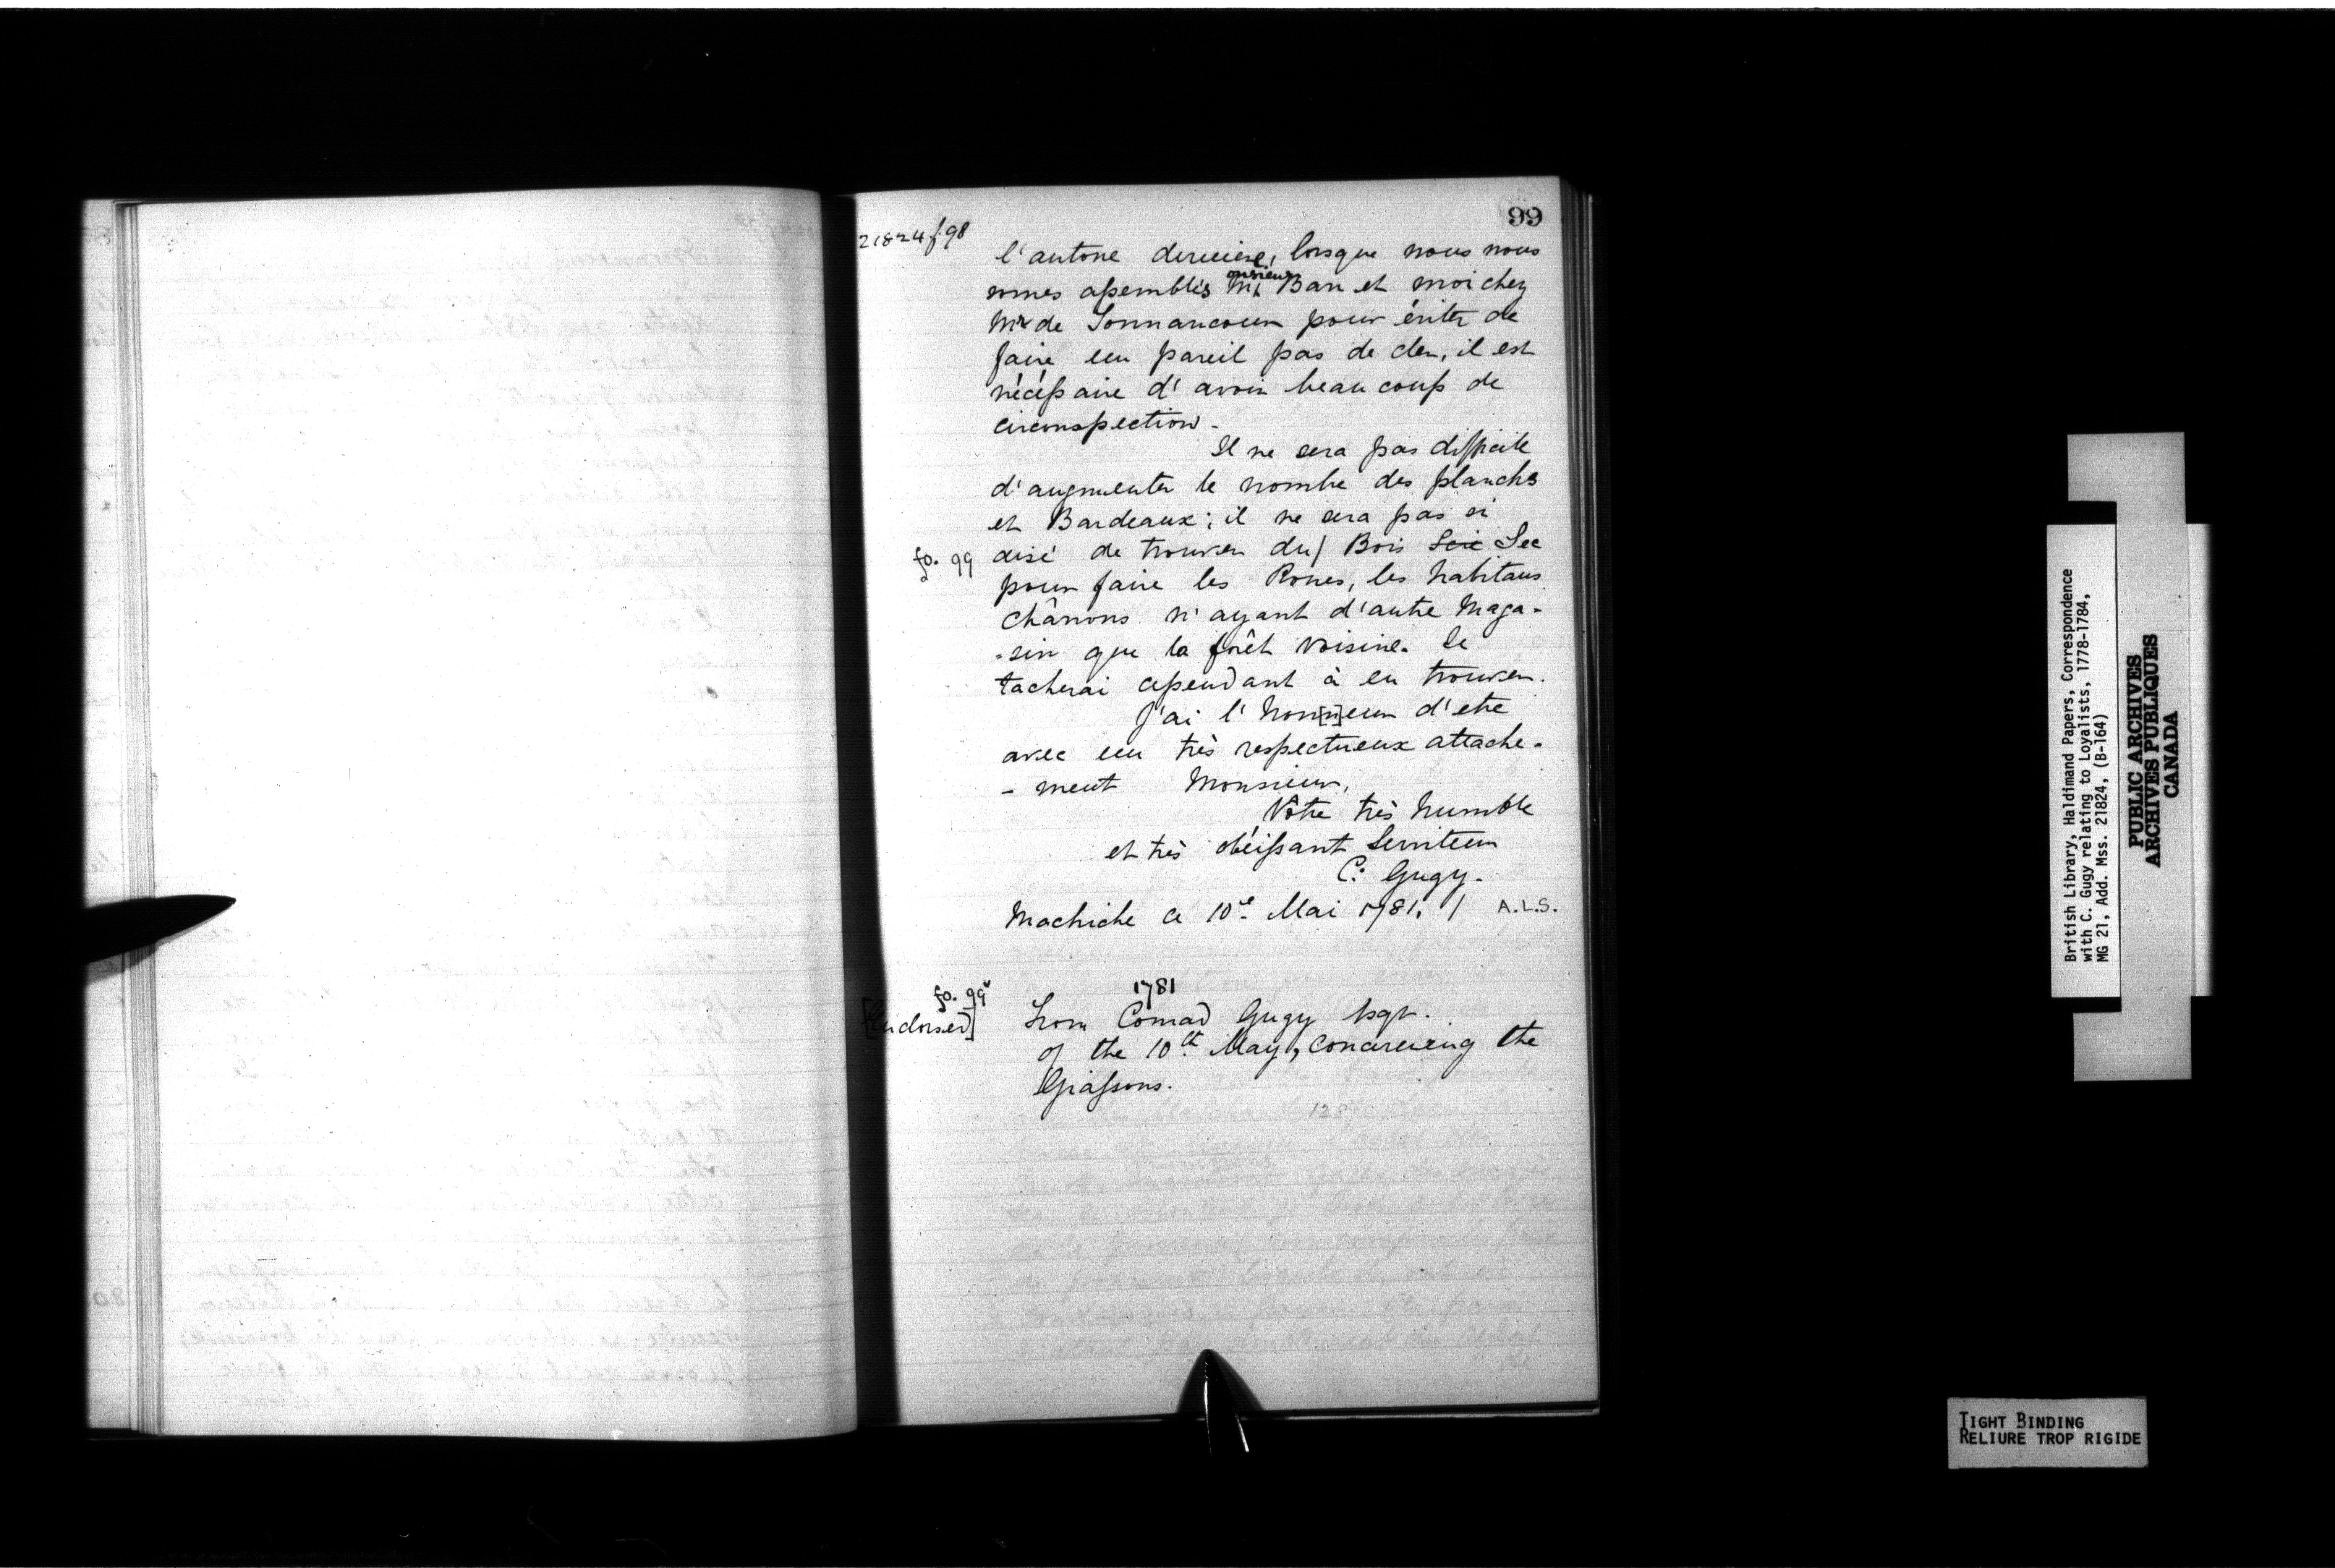 99
21824 f. 98
l'autone derniere, lorsque nous nous
somes assemblés Monsieur Bau et moi chez
Mr de Tonnancour pour éviter de
faire un pareil pas de cler, il est
nécéssaire d'avoir beaucoup de
circonspection.
Il ne sera pas difficile
d'augmenter le nombre des planchs
et Bardeaux; il ne sera pas si
fo. 99 aisé de trouver du/ Bois Scié Sec
pour faire les Roues, les habitans
chârrons n'ayant d'autre Maga-
-sin que la forêt voisine. Je
tacherai cependant à en trouver.
J'ai l'hon[n]eur d'etre
avec un très respectueux attache-
-ment Monsieur,
Vôtre très humble
et très obéissant Serviteur
C. Gugy.
Machiche ce 10e Mai 1781. / A.L.S.
fo. 99v 1781
[Endorsed] From Conrad Gugy Esqr.
of the 10th May, concerning the
Giassons.
128
British Library, Haldimand Papers, Correspondence
with C. Gugy relating to Loyalists, 1778-1784,
MG 21, Add. Mss. 21824, (B-164)
PUBLIC ARCHIVES
ARCHIVES PUBLIQUES
CANADA
TIGHT BINDING
RELIURE TROP RIGIDE